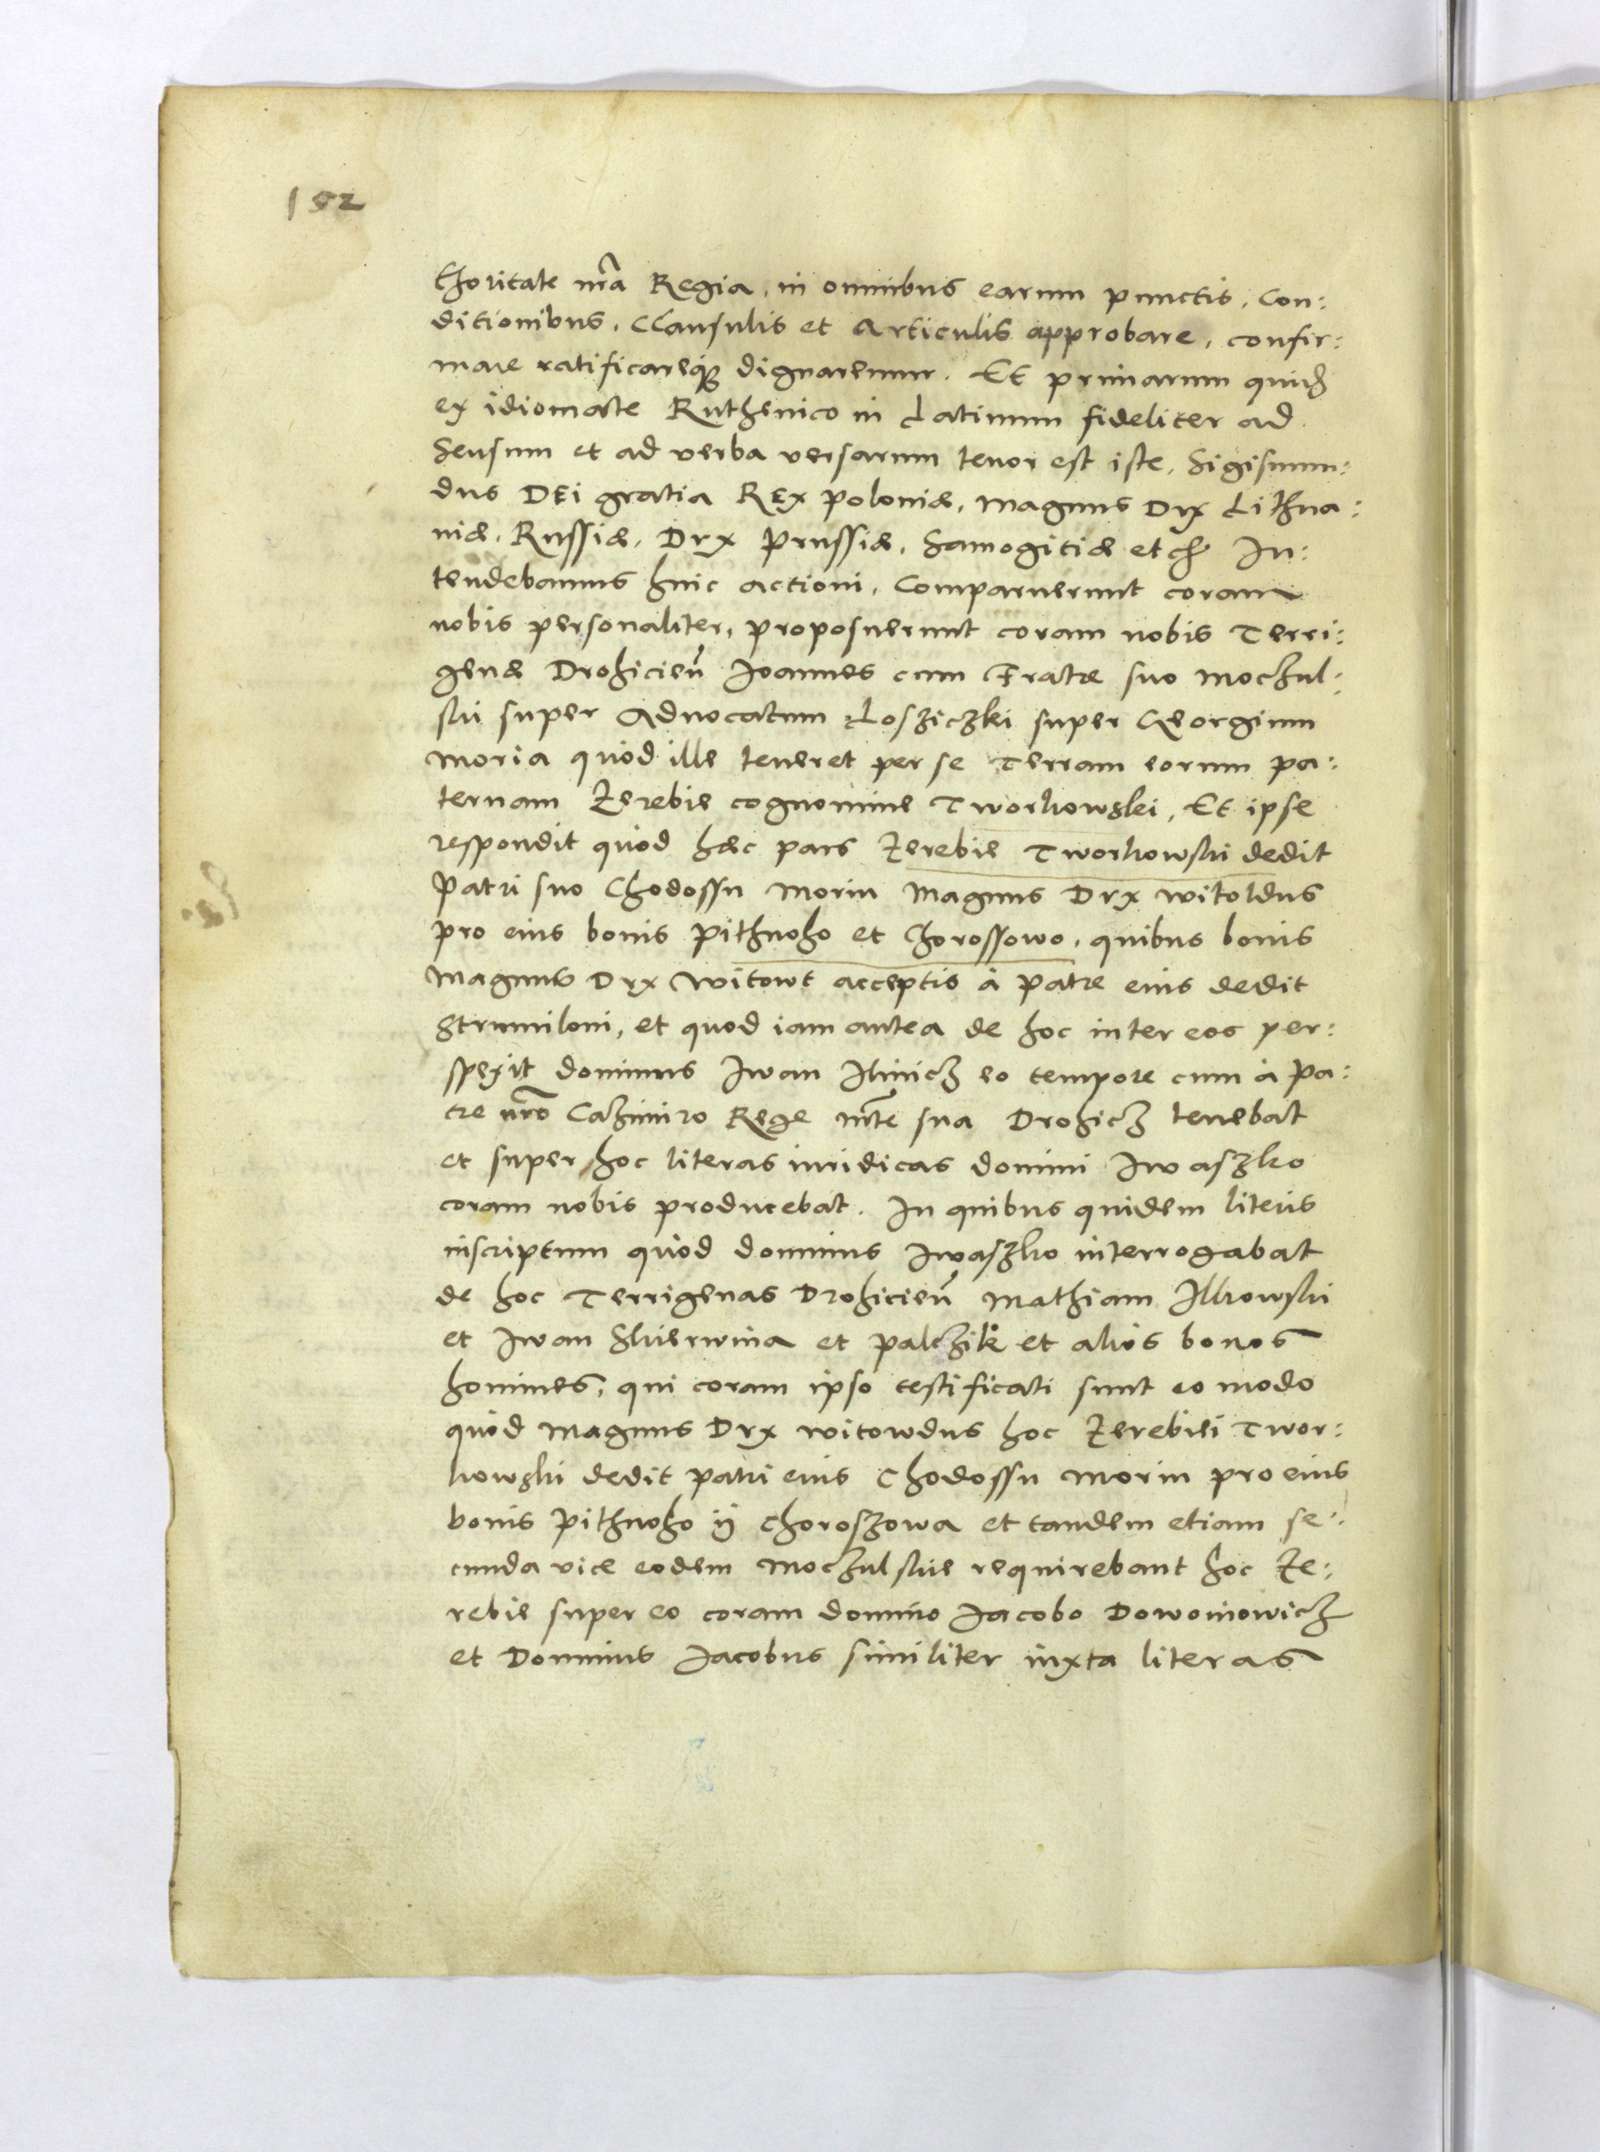 152
thoritate nrã Regia, in omnibus earum punctis, Con:
ditionibus, Clausulis et Articulis approbare, confir:
mare ratificareq₃ dignaremur. Et primarum quid̃
ex idiomate Ruthenico in Latinum fideliter ad
Sensum et ad verba versarum tenor est iste, Sigismun:
dus DEi gratia REx Poloniæ, Magnus Dux Lithua:
niæ, Russiæ, Dux Prussiæ, Samogitiæ etc̃ In:
tendebamus huic actioni, Comparuerunt coram
nobis personaliter, proposuerunt coram nobis Terri:
genæ Drohicieñ Joannes cum Fratre suo Moczul:
ski super Aduocatum Losziczki super Georgium
Moria quòd ille teneret per se Terram eorum pa:
ternam Zerebie cognomine Tworkowski, Et ipse
respondit quòd hæc pars Zerebie Tworkowski dedit
Patri suo Chodossu Moriu Magnus Dux Witoldus
pro eius bonis Pithnoho et Chorossowo, quibus bonis
Magnus Dux Witowt acceptis à patre eius dedit
Strumiloni, et quod iam antea de hoc inter eos per:
spexit dominus Iwan Ilinicz eo tempore cum à Pa:
tre nrõ Cazimiro Rege m̃te sua Drohicz tenebat
et super hoc literas iuridicas domini Iwaszko
coram nobis producebat. In quibus quidem literis
inscriptum quòd dominus Iwaszko interrogabat
de hoc Terrigenas Drohicieñ Mathiam Ilkowski
et Iwan Skierwina et Palczik et alios bonos
homines, qui coram ipso testificati sunt eo modo
quòd Magnus Dux Witowdus hoc Zerebiei Twor:
kowski dedit patri eius Chodossu Moriu pro eius
bonis Pithnoho ij Choroszowa et tandem etiam se:
cunda vice eodem Moczulskie requirebant hoc Ze:
rebie super eo coram domino Jacobo Dowoinowicz
et Dominus Jacobus similiter iuxta literas